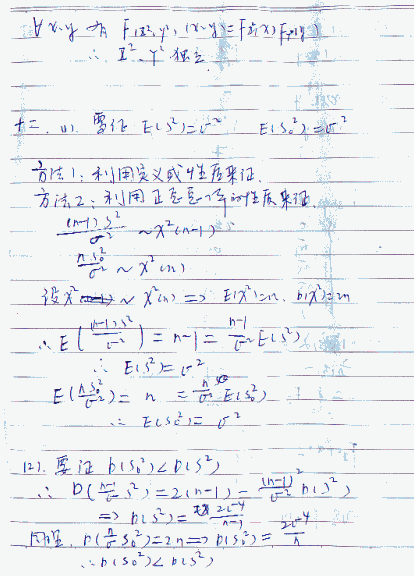 ∀ x,y 有 F(X²,Y²)(x,y)=F_X²(x)F_Y²(y)
∴ X², Y² 独立
十二. (1). 要证 E(S²)=σ² E(S₀²)=σ²
方法1: 利用定义或性质来证.
方法2: 利用正态总体的性质来证.
(n-1)S²/σ² ~ χ²(n-1)
nS₀²/σ² ~ χ²(n)
设 χ² ~ χ²(n) => E(χ²)=n. D(χ²)=2n
∴ E((n-1)S²/σ²) = n-1 = (n-1)/σ² E(S²)
∴ E(S²)=σ²
E(nS₀²/σ²) = n = n/σ² E(S₀²)
∴ E(S₀²)= σ²
(2). 要证 D(S₀²)<D(S²)
∴ D((n-1)/σ² S²)=2(n-1) = (n-1)²/σ² D(S²)
=> D(S²)= 2σ⁴/(n-1)
同理. D(n/σ² S₀²)=2n => D(S₀²) = 2σ⁴/n
∴ D(S₀²)<D(S²)